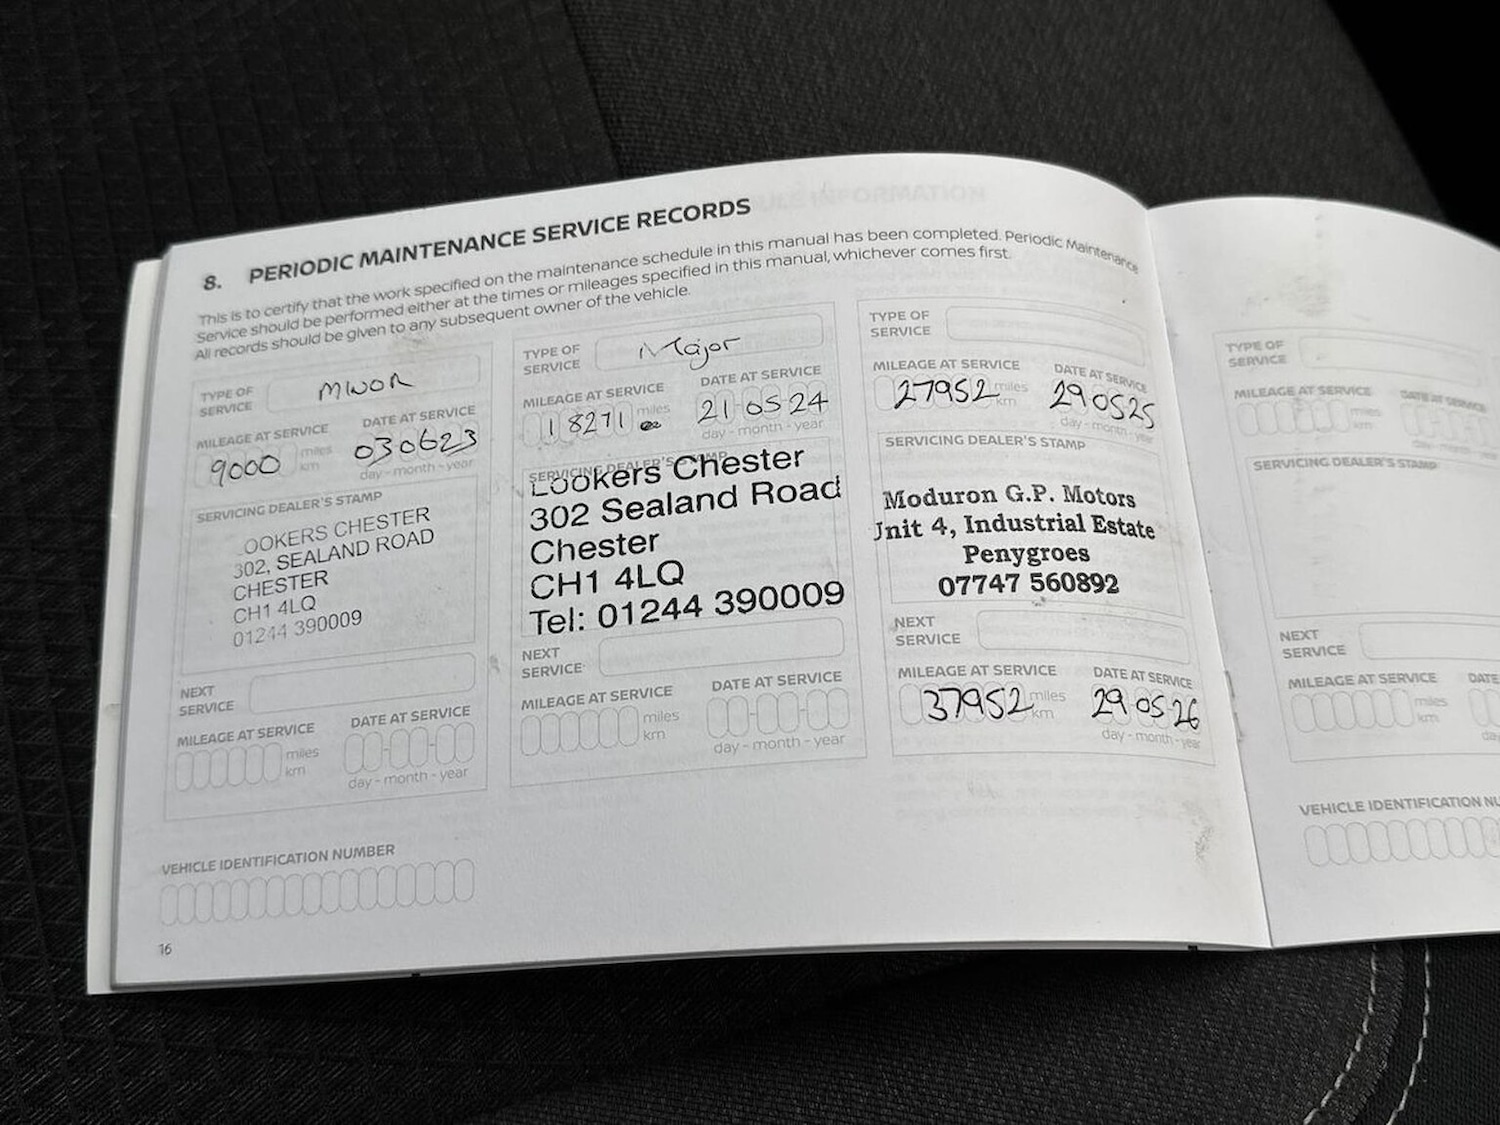 8. PERIODIC MAINTENANCE SERVICE RECORDS
This is to certify that the work specified on the maintenance schedule in this manual has been completed. Periodic Maintenance
Service should be performed either at the times or mileages specified in this manual, whichever comes first.
All records should be given to any subsequent owner of the vehicle.
TYPE OF
SERVICE
MILEAGE AT SERVICE
DATE AT SERVICE
9000
miles
km
030623
day - month - year
SERVICING DEALER'S STAMP
OOKERS CHESTER
302, SEALAND ROAD
CHESTER
CH1 4LQ
01244 390009
NEXT
SERVICE
MILEAGE AT SERVICE
DATE AT SERVICE
miles
km
day - month - year
VEHICLE IDENTIFICATION NUMBER
16
TYPE OF
SERVICE
Major
MILEAGE AT SERVICE
DATE AT SERVICE
18271
miles
21 05 24
day - month - year
SERVICING DEALER'S STAMP
Lookers Chester
302 Sealand Road
Chester
CH1 4LQ
Tel: 01244 390009
NEXT
SERVICE
MILEAGE AT SERVICE
DATE AT SERVICE
miles
km
day - month - year
TYPE OF
SERVICE
MILEAGE AT SERVICE
DATE AT SERVICE
27952
miles
km
29 05 25
day - month - year
SERVICING DEALER'S STAMP
Moduron G.P. Motors
Unit 4, Industrial Estate
Penygroes
07747 560892
NEXT
SERVICE
MILEAGE AT SERVICE
DATE AT SERVICE
37952
miles
km
29 05 26
day - month - year
TYPE OF
SERVICE
MILEAGE AT SERVICE
DATE AT SERVICE
miles
km
SERVICING DEALER'S STAMP
NEXT
SERVICE
MILEAGE AT SERVICE
DATE
miles
km
VEHICLE IDENTIFICATION NU